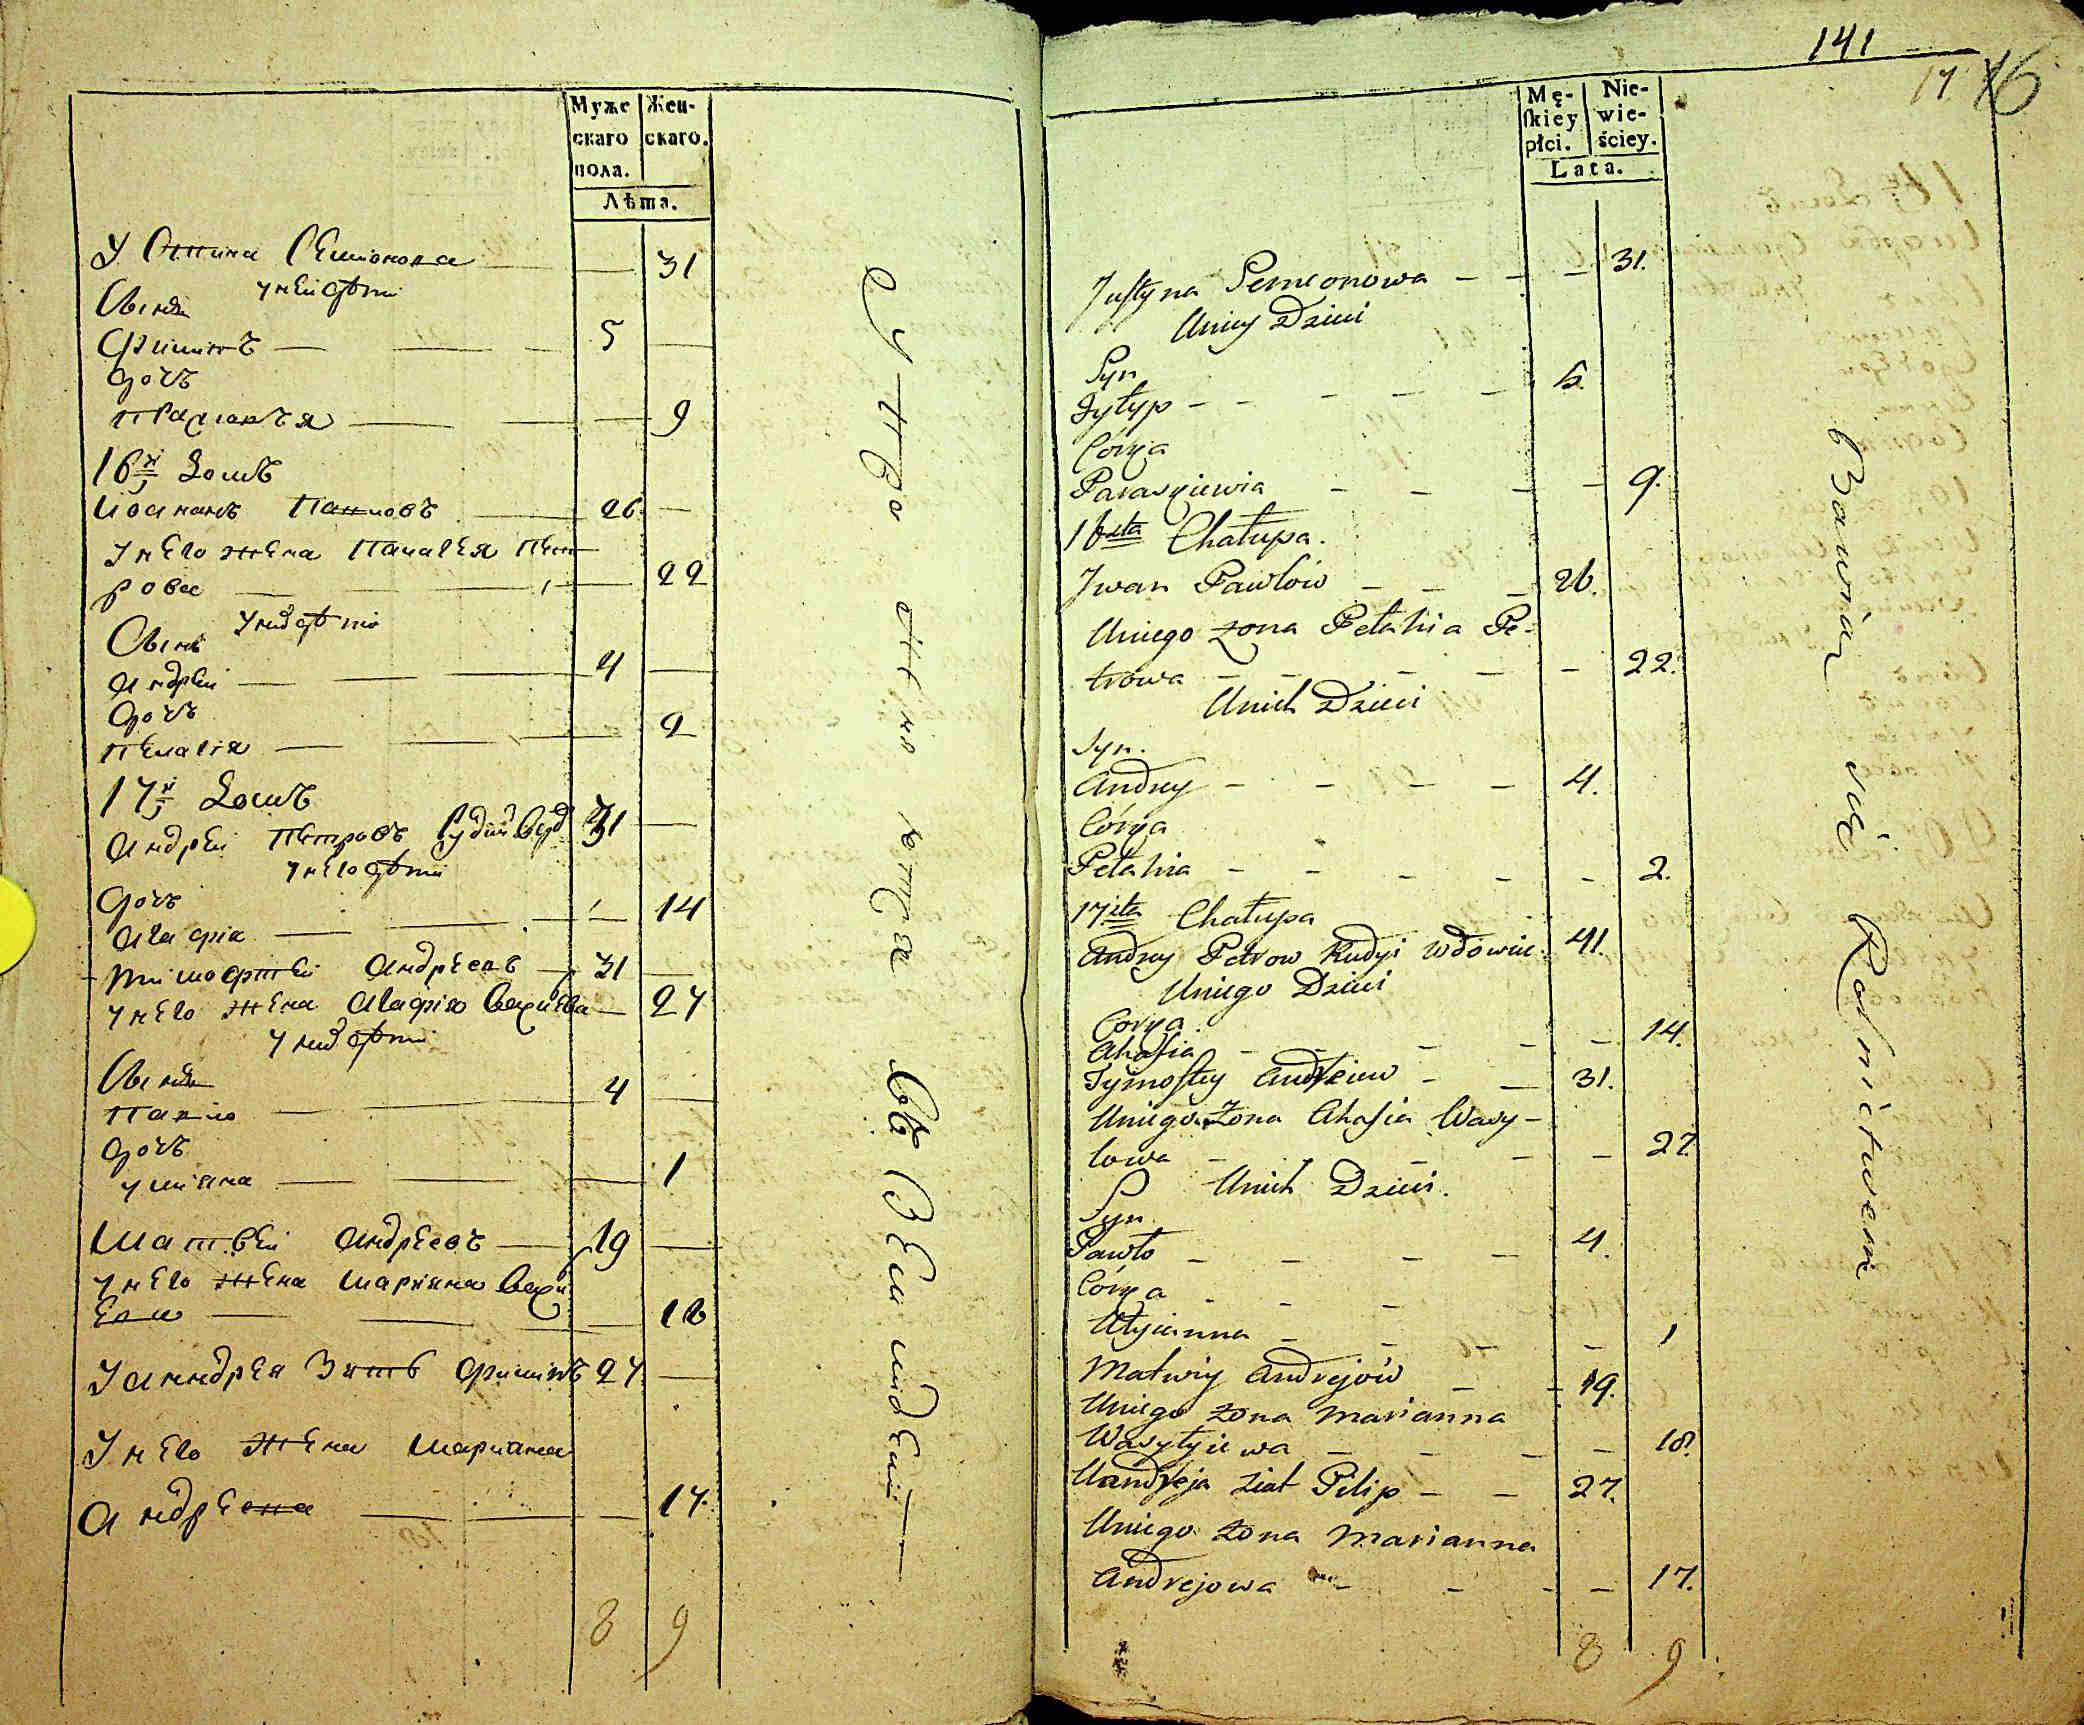 Муже
скаго
пола.
Жен-
скаго.
Лѣта.
Устина Семионова 31
Сынъ
унеи дѣти
Филипъ 5
дочъ
Парасковъя 9
16й Домъ
Иванъ Павловъ 26
унего жена Палагея Пет
рова 22
Сынъ униедѣти
Андреи 4
дочъ
Пелагія 2
17й Домъ
Андреи Петровъ Рудии вд 41
унего дѣти
дочъ
Агафія 14
Тимофтеи Андреевъ 31
унего жена Агафія Василева 27
уних дѣти
Сынъ
Павло 4
дочъ
улияна 1
Матвеи Андреевъ 19
унего жена Марияна Васи
ева 18
У Андрея Зять Филипъ 27
Унего жена Марияна
Андреева 17
8 9
141
17 16
Mę-
skiey
płci.
Nie-
wie-
ściey.
Lata.
Justyna Semeonowa 31.
Uniey Dzieci
Syn
Fyłyp 5.
Córka
Paraskiewia 9.
16sta Chałupa.
Jwan Pawłów 26.
Uniego żona Pełahia Pe-
trowa 22.
Unich Dzieci
Syn.
Andrey 4.
Córka
Pełahia 2.
17sta Chałupa
Andrey Petrow Rudyi wdowiec 41.
Uniego Dzieci
Córka
Ahafia 14.
Tymoftey Andreiew 31.
Uniego żona Ahafia Wasy-
lowa 27.
Unich Dzieci.
Syn.
Pawło 4.
Córka
Ulyianna 1
Matwiy Andrejów 19.
Uniego żona Marianna
Wasyłyiewa 18.
Uandreja ziat Pilip 27.
Uniego żona Marianna
Andrejowa 17.
8 9
Bawią się Rolnictwem